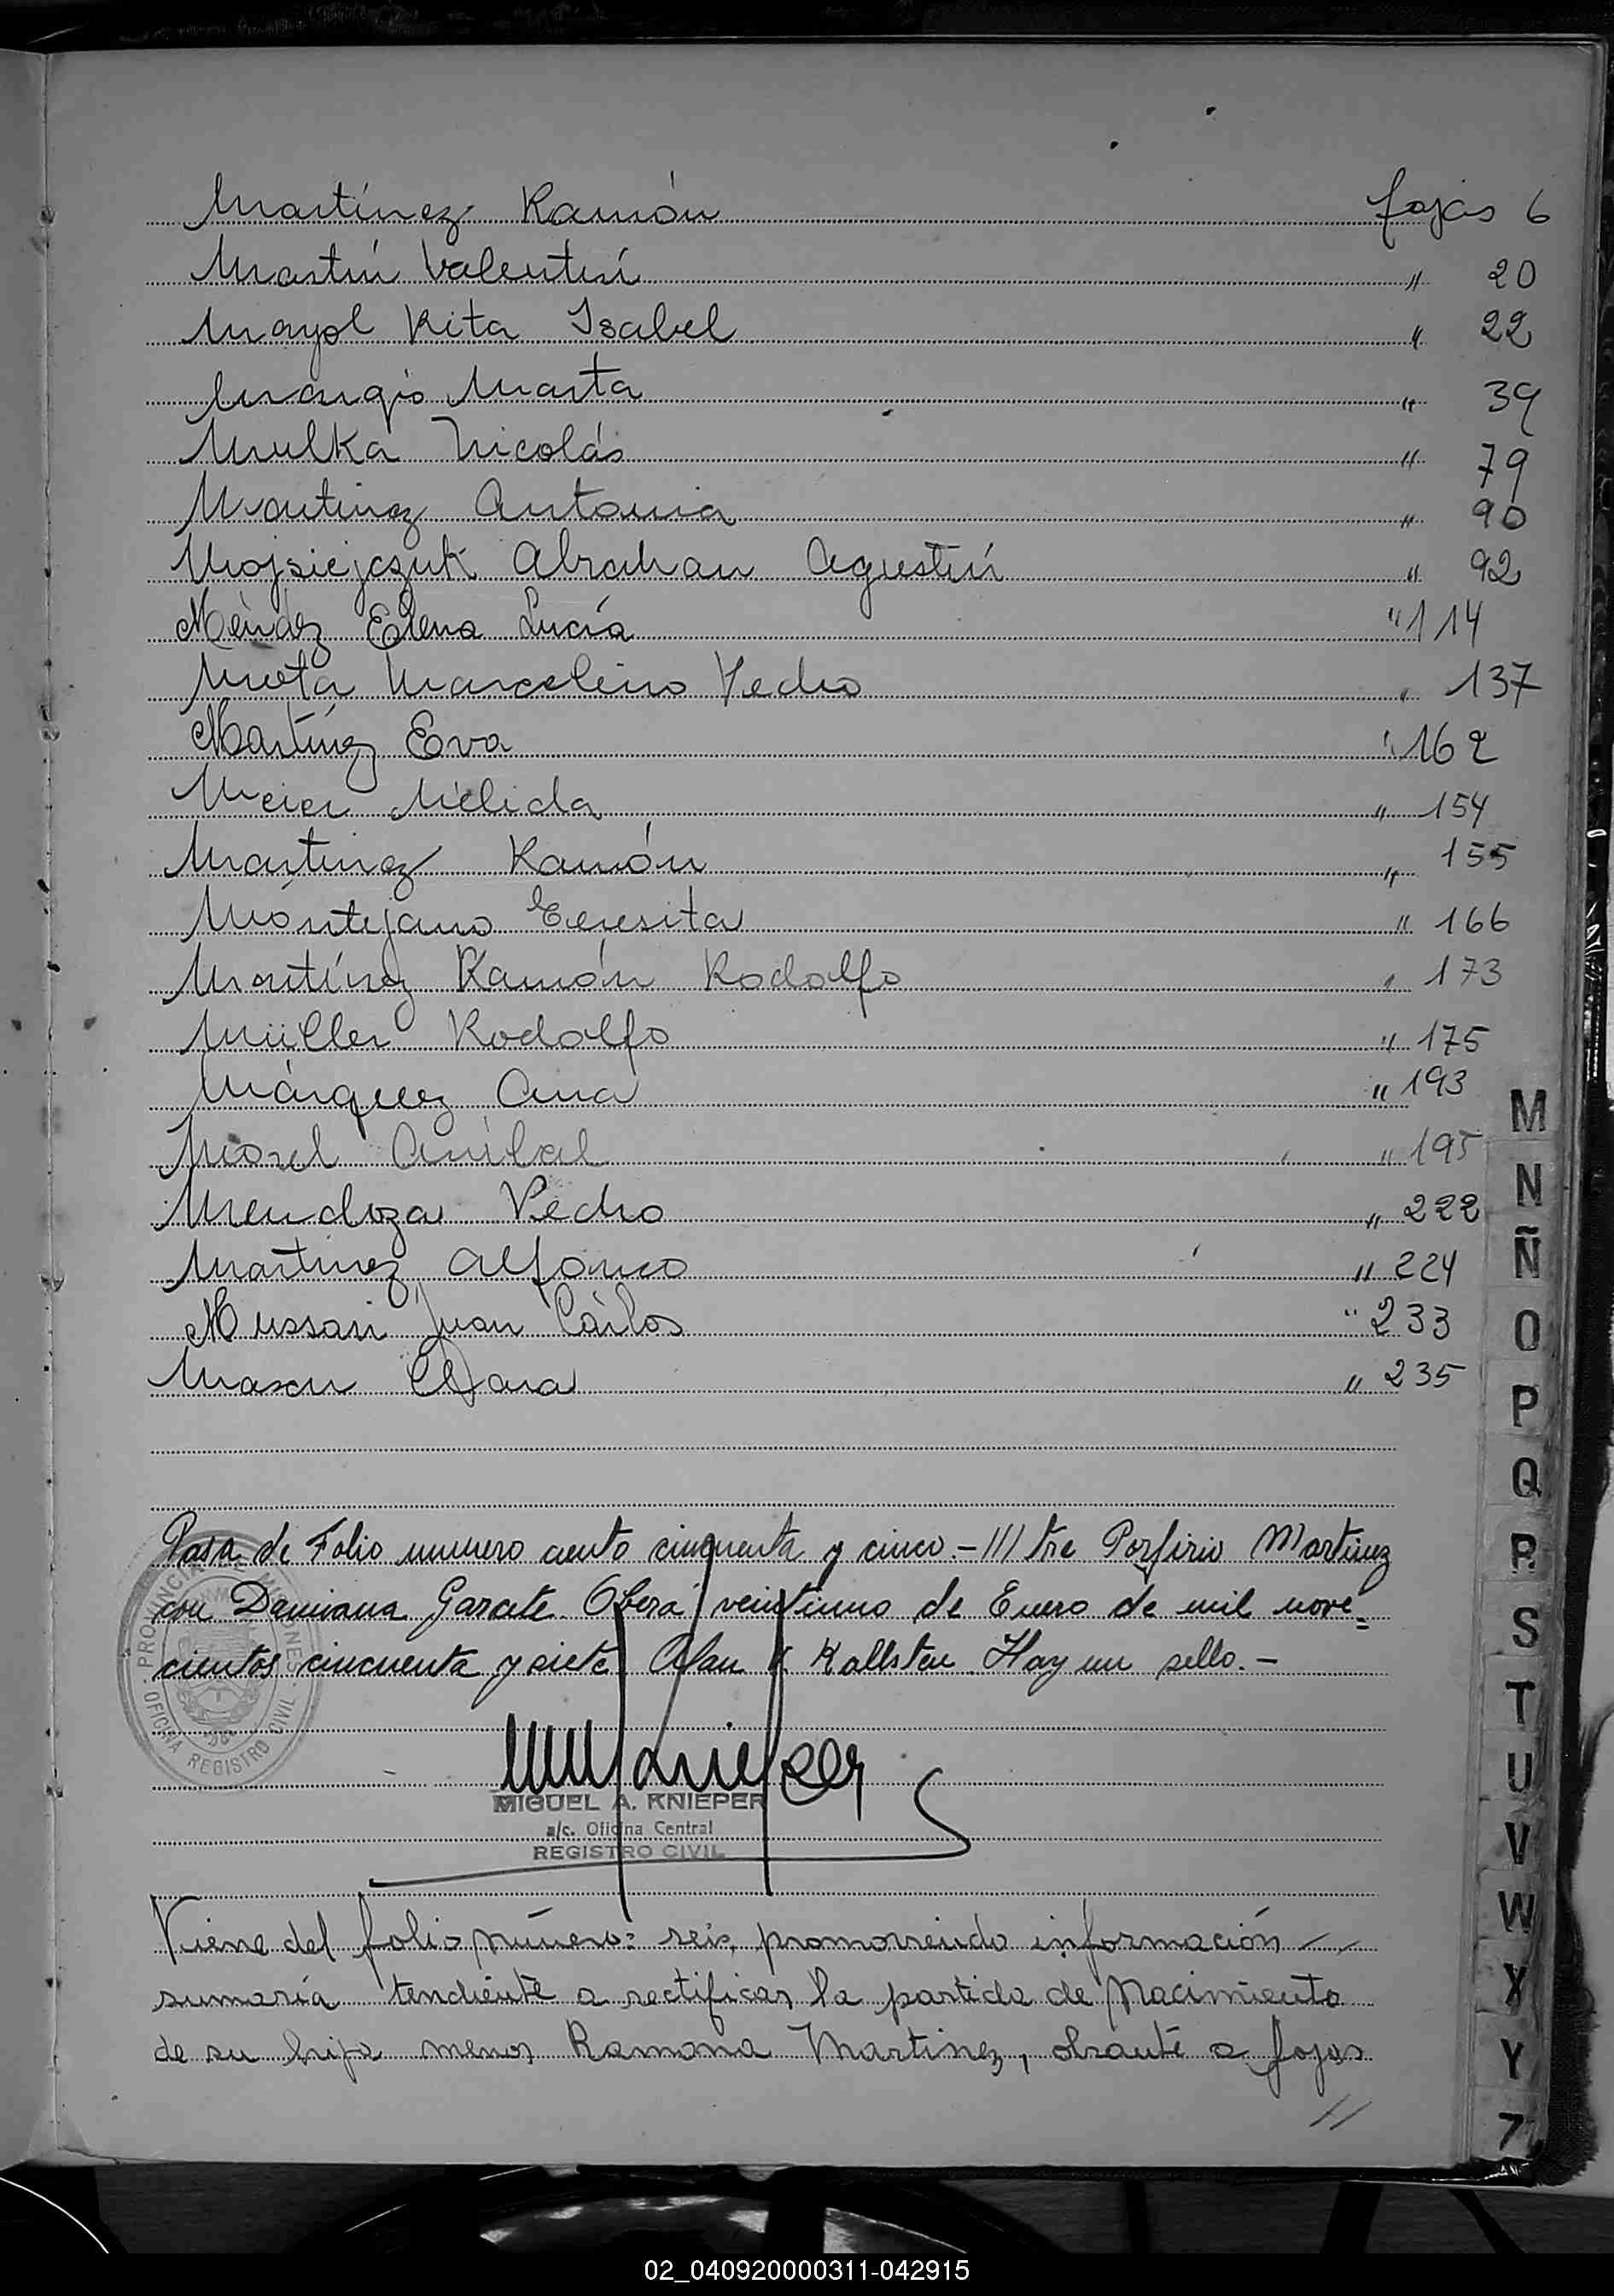 Martínez Ramón fojas 6
Martín Valentín " 20
Mayol Rita Isabel " 22
Mangio Marta " 39
Mulka Nicolás " 79
Martinez Antonia " 90
Mojsiejczuk Abrahan Agustín " 92
Méndez Elena Lucía " 114
Mota Marcelino Pedro " 137
Martínez Eva " 162
Meier Nélida " 154
Martinez Ramón " 155
Montejano Teresita " 166
Martínez Ramón Rodolfo " 173
Müller Rodolfo " 175
Márquez Ana " 193
Morel Aníbal " 195
Mendoza Pedro " 222
Martinez Alfonso " 224
Mussari Juan Carlos " 233
Clara " 235
Pasa de Folio numero ciento cincuenta y cinco.- /// tre Porfirio Martinez
con Damiana Garate. Oberá veintiuno de Enero de mil nove=
cientos cincuenta y siete Alan K Kallsten. Hay un sello.-
PROVINCIA DE MISIONES
OFICINA REGISTRO CIVIL
MIGUEL A. KNIEPER
a/c. Oficina Central
REGISTRO CIVIL
Viene del folio número: seis, promoviendo información
sumaria tendiente a rectificar la partida de Nacimiento
de su hija menor Ramona Martinez, obrante a fojas
//
M
N
Ñ
O
P
Q
R
S
T
U
V
W
X
Y
Z
02_040920000311-042915